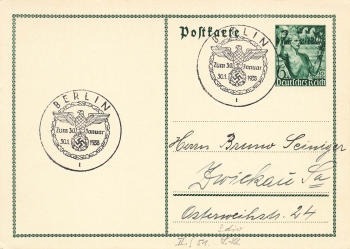 Postkarte
BERLIN
Zum 30. Januar
30.1. 1938
1
6
Deutsches Reich
BERLIN
Zum 30. Januar
30.1. 1938
1
Herrn Bruno
Zwickau Sa
24